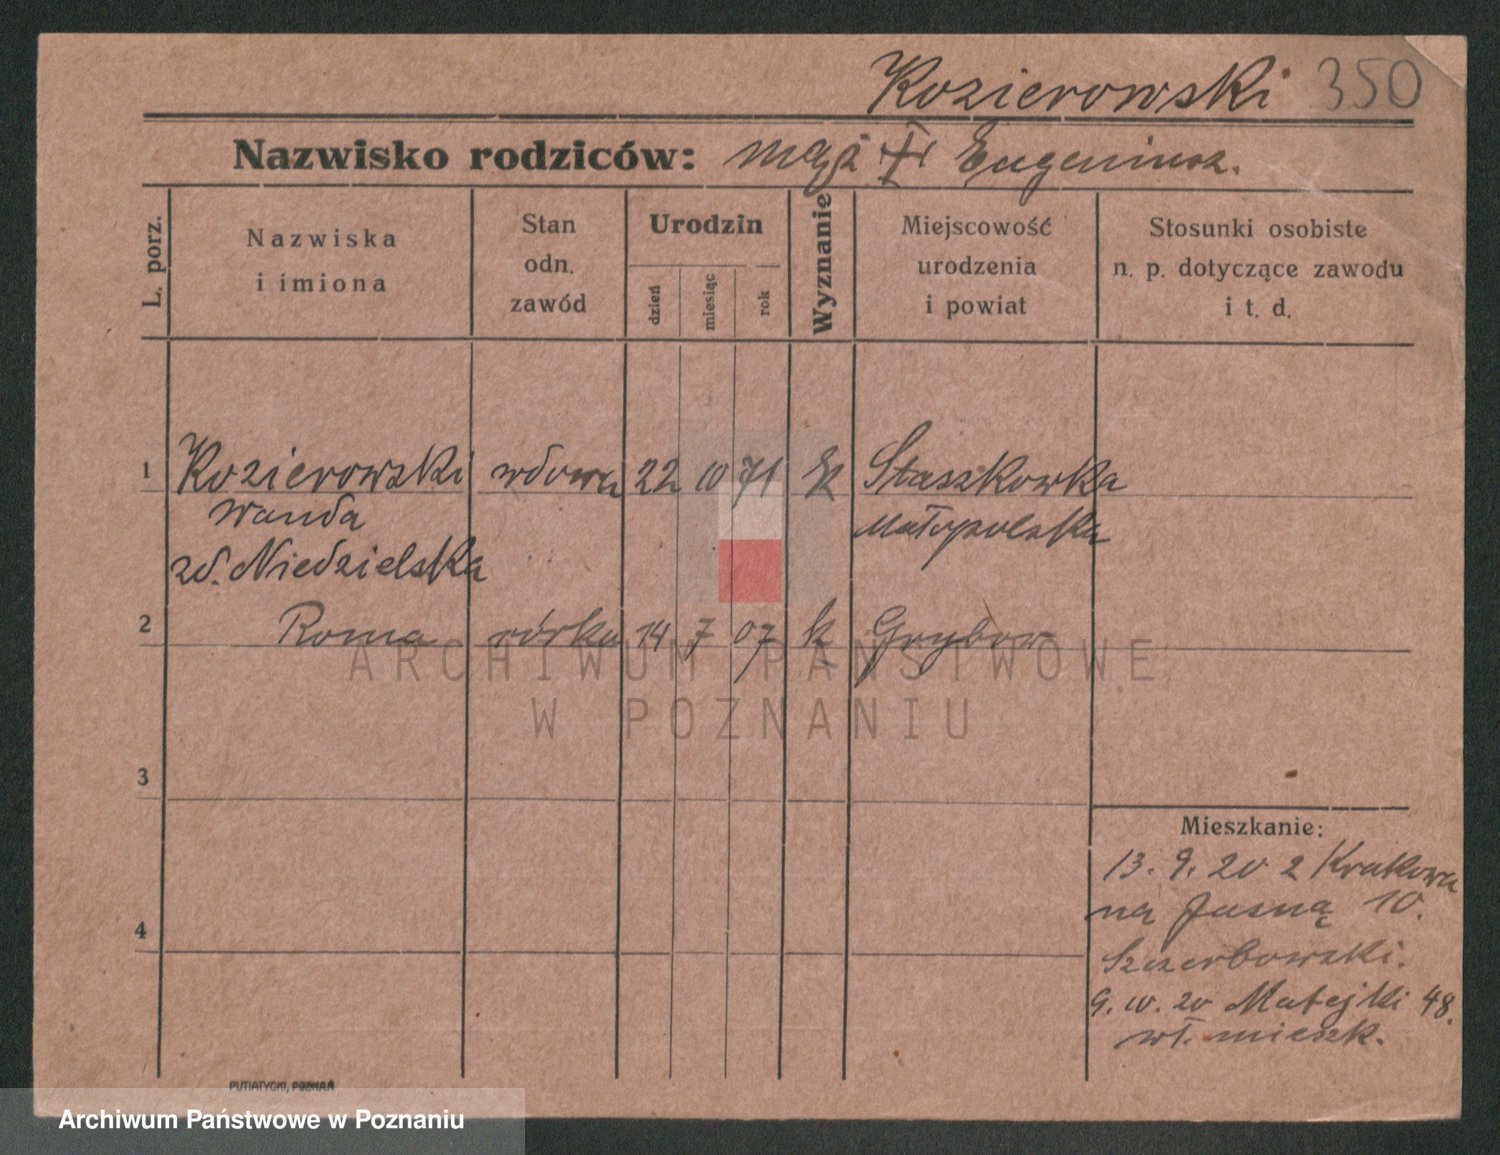 Kozierowski 350
Nazwisko rodziców: mąż Eugeniusz.
L. porz.
Nazwiska
i imiona
Stan
odn.
zawód
Urodzin
dzień
miesiąc
rok
Wyznanie
Miejscowość
urodzenia
i powiat
Stosunki osobiste
n. p. dotyczące zawodu
i t. d.
1 Kozierowski wdowa 22 10 71 k Staszkowka
Wanda Małopolska
zd. Niedzielska
2 Roma córka 14 7 07 k Grybow
ARCHIWUM PAŃSTWOWE
W POZNANIU
3
Mieszkanie:
13. 9. 20 z Krakowa
na Jasną 10.
4
Szczerbowski.
9. 10. 20 Matejki 48.
wł. mieszk.
PUTIATYCKI, POZNAŃ
Archiwum Państwowe w Poznaniu